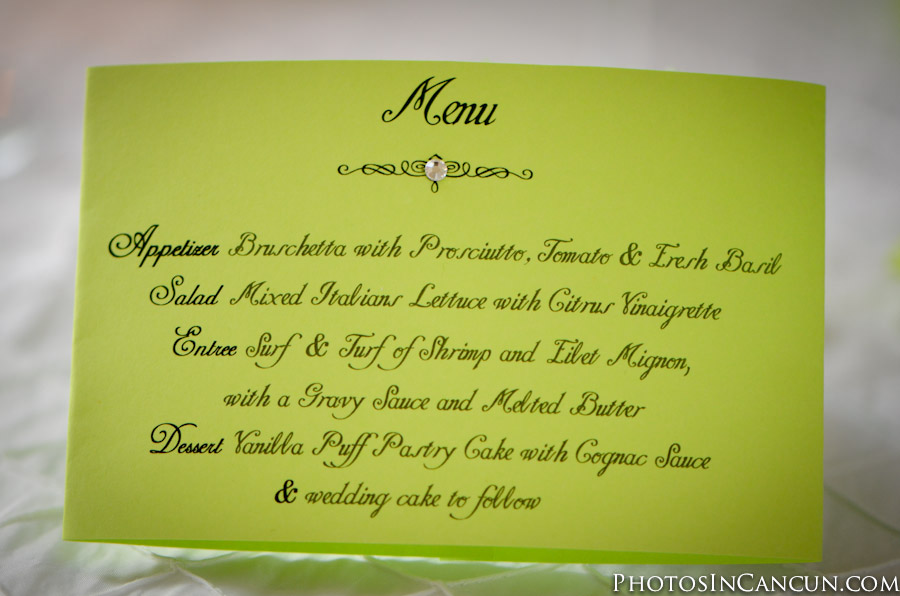 Menu
Appetizer Bruschetta with Prosciutto, Tomato & Fresh Basil
Salad Mixed Italians Lettuce with Citrus Vinaigrette
Entree Surf & Turf of Shrimp and Filet Mignon,
with a Gravy Sauce and Melted Butter
Dessert Vanilla Puff Pastry Cake with Cognac Sauce
& wedding cake to follow
PhotosInCancun.com